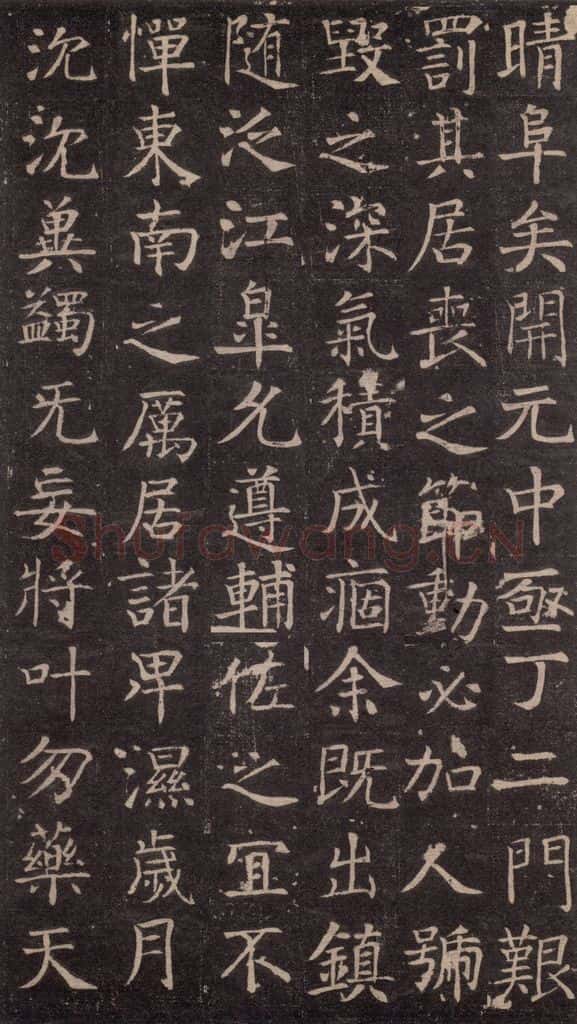 晴阜矣開元中亟丁二門艱
罰其居喪之節動必加人號
毀之深氣積成痼余既出鎮
随泛江皐允遵輔佐之宜不
憚東南之厲居諸卑濕歲月
沈沈兾蠲旡妄將叶勿藥天
Shufawang.CN